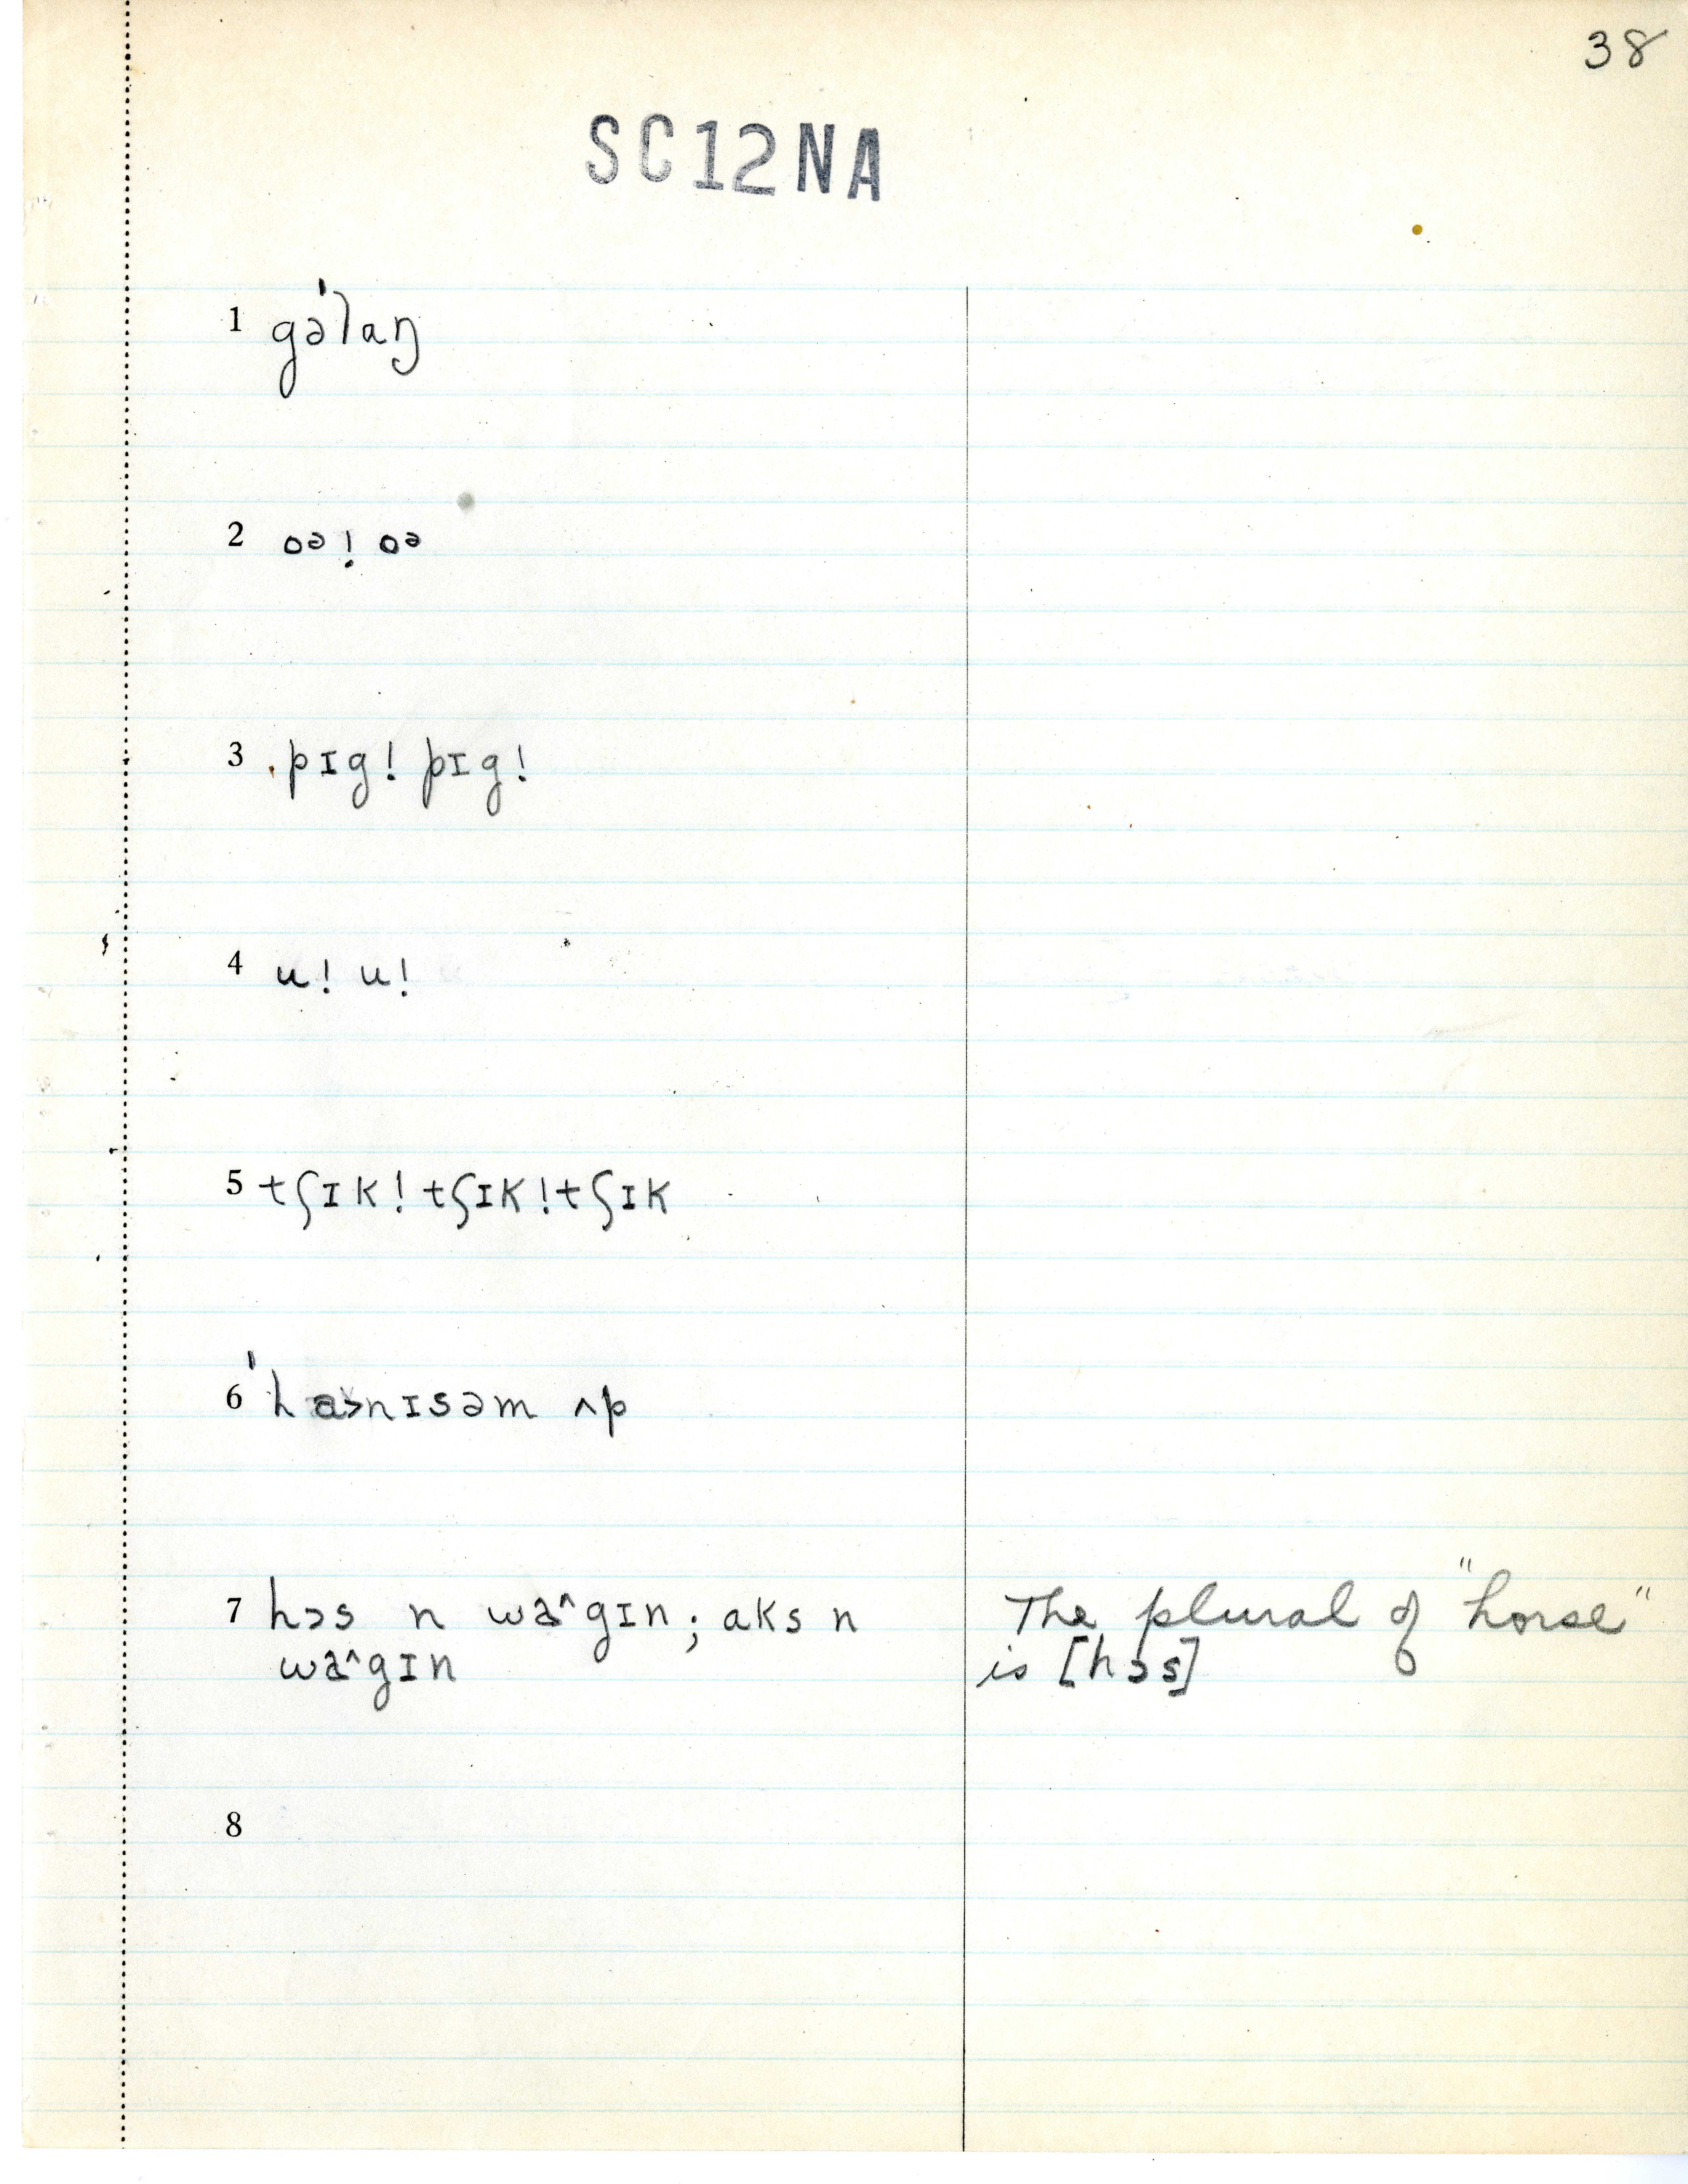 38
SC12NA
1 gə'laŋ
2 oə! oə
3 pɪg! pɪg!
4 u! u!
5 tʃɪk! tʃɪk! tʃɪk
6 'ha>nɪsəm ʌp
7 hɔs n wa^gɪn; aks n The plural of "horse"
wa^gɪn is [hɔs]
8